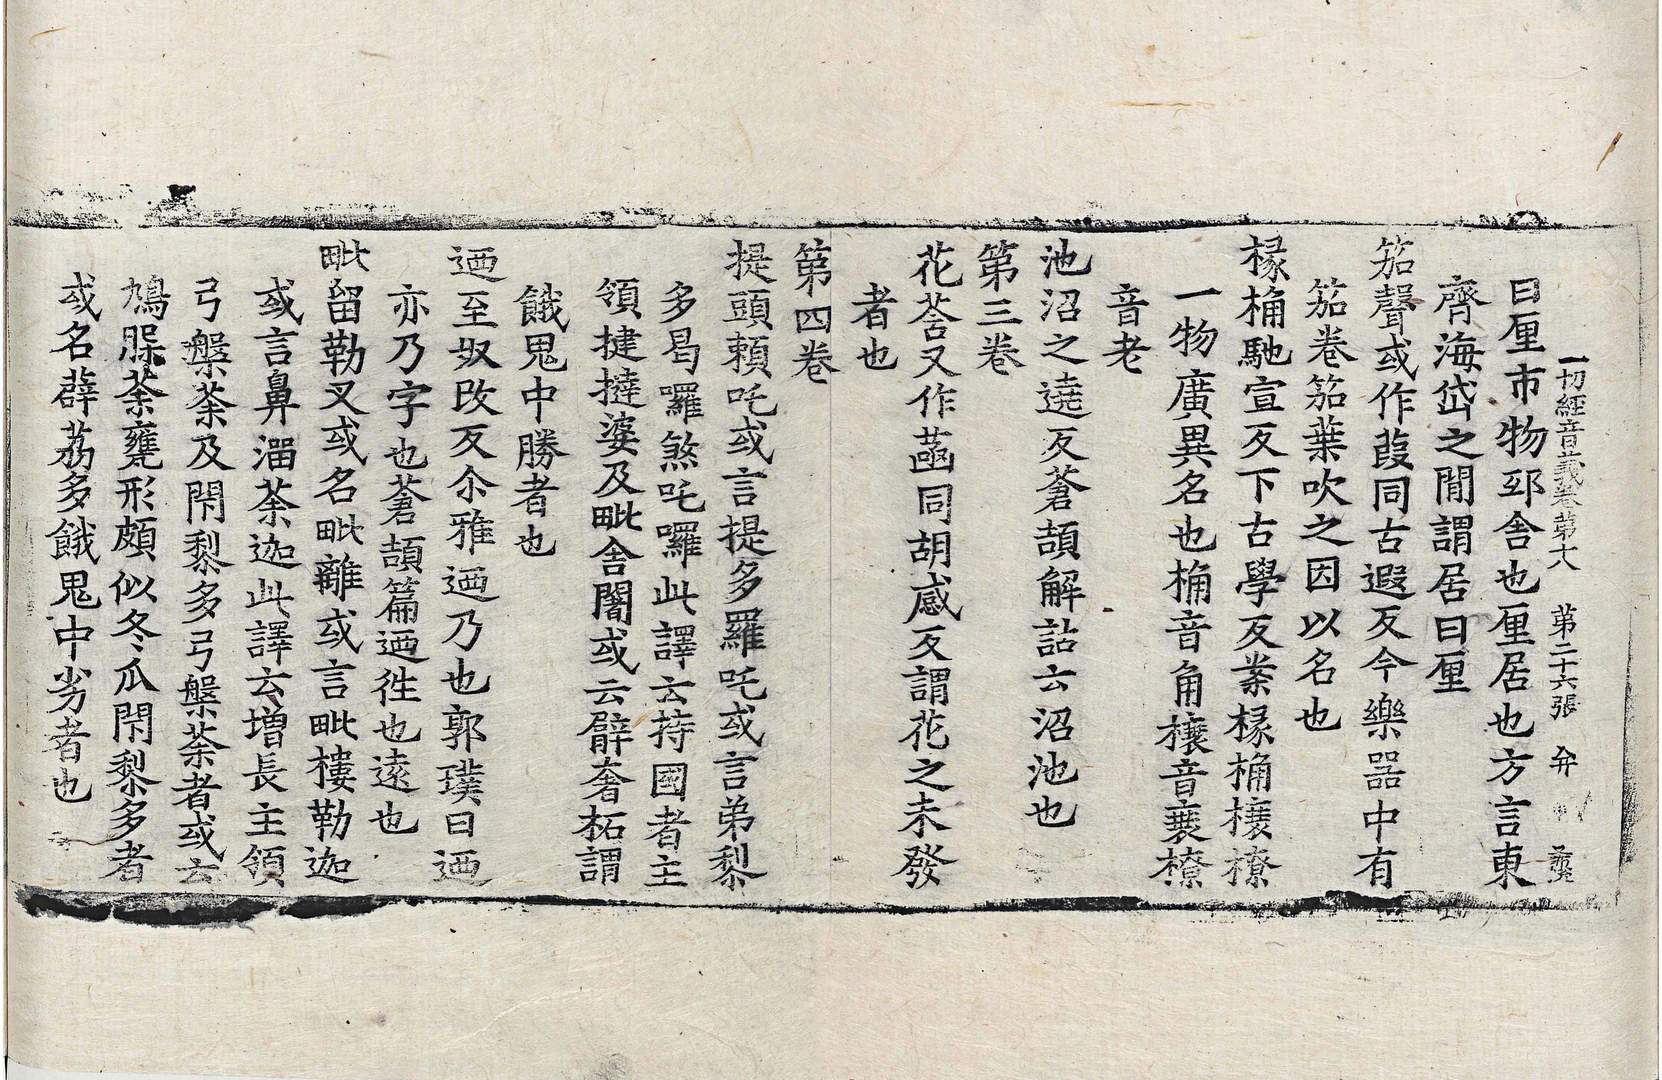 一切經音義卷第十八 第二十六張 弁
曰厘市物邸舍也厘居也方言東
齊海岱之閒謂居曰厘
笳聲或作葭同古遐反今樂器中有
笳卷笳葉吹之因以名也
椽桷馳宣反下古學反案椽桷榱橑
一物廣異名也桷音角榱音衰橑
音老
池沼之遶反蒼頡解詁云沼池也
第三卷
花菩又作菡同胡感反謂花之未發
者也
第四卷
提頭賴吒或言提多羅吒或言弟梨
多曷囉煞吒囉此譯云持國者主
領揵撻婆及毗舍闍或云臂奢柘謂
餓鬼中勝者也
迺至奴改反尒雅迺乃也郭璞曰迺
亦乃字也蒼頡篇迺徃也遠也
毗留勒叉或名毗離或言毗樓勒迦
或言鼻溜荼迦此譯云增長主領
弓槃荼及閇黎多弓槃荼者或云
鳩槃荼甕形頗似冬瓜閇黎多者
或名薜荔多餓鬼中劣者也